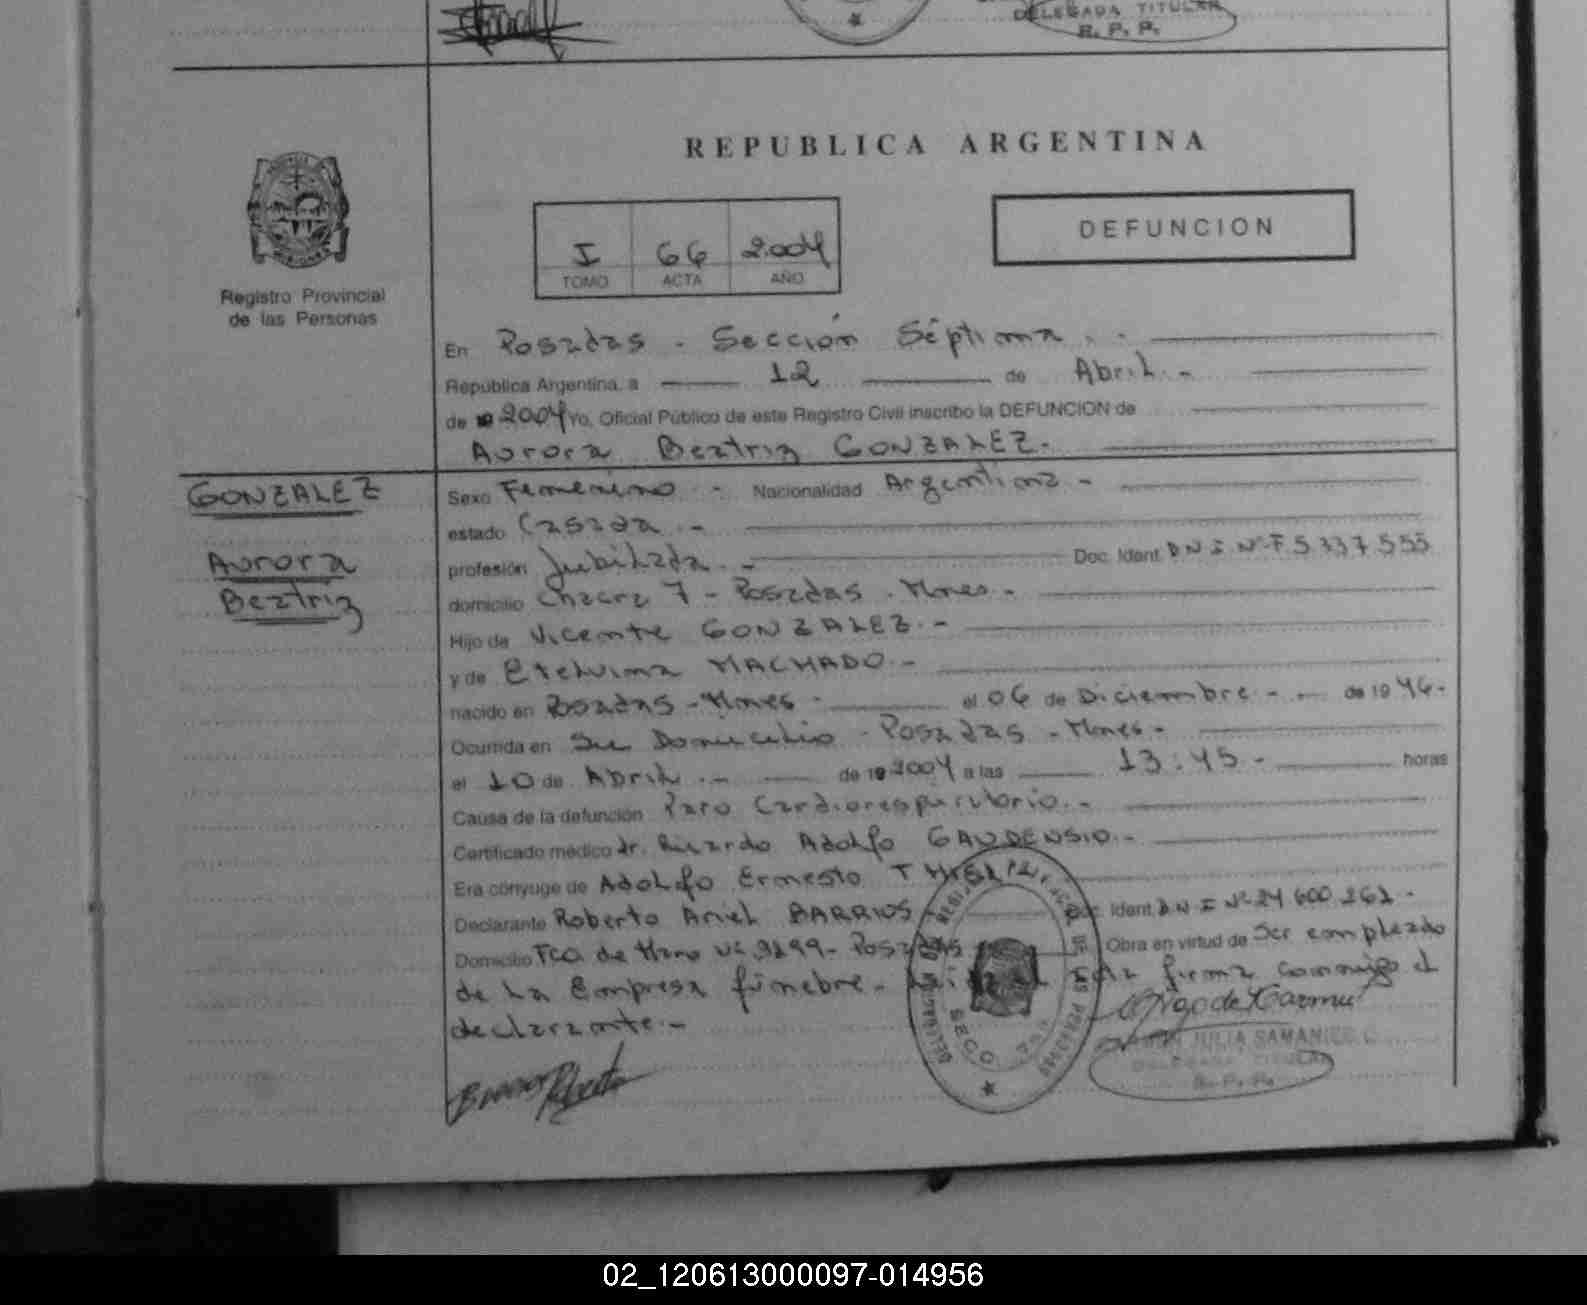 DELEGADA TITULAR
R. P. P.
REPUBLICA ARGENTINA
DEFUNCION
I 66 2.004
TOMO ACTA AÑO
Registro Provincial
de las Personas
En Posadas - Sección Séptima. -
República Argentina, a 12 de Abril. -
de 19 2004 Yo, Oficial Público de este Registro Civil inscribo la DEFUNCION de
Aurora Beatriz GONZALEZ. -
GONZALEZ
Aurora
Beatriz
Sexo Femenino - Nacionalidad Argentina -
estado Casada. -
profesión Jubilada. - Doc. Ident. D N I Nº F 5.337.555
domicilio Chacra 7 - Posadas - Mnes -
Hijo de Vicente GONZALEZ. -
y de Etelvina MACHADO. -
nacido en Posadas - Mnes - el 06 de Diciembre - de 19 46 -
Ocurrida en Su Domicilio - Posadas - Mnes -
el 10 de Abril. - de 19 2004 a las 13:45 - horas
Causa de la defunción Paro Cardiorespiratorio. -
Certificado médico dr. Ricardo Adolfo GAUDENSIO. -
Era cónyuge de Adolfo Ernesto
Declarante Roberto Ariel BARRIOS - Doc. Ident. D N I Nº 24.600.262 -
Domicilio Fco. de Haro Nº 9299 - Posadas Obra en virtud de Ser empleado
de la Empresa fúnebre - firma conmigo el
declarante. -
JULIA SAMANIEGO
DELEGADA TITULAR
R. P. P.
02_120613000097-014956